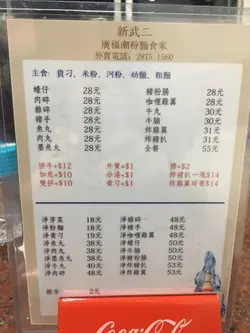 新武二
廣福潮粉麵食家
外賣電話：2875 1560
主食：貴刁、米粉、河粉、幼麵、粗麵
蠔仔 28元 豬粉腸 28元
肉碎 28元 咖喱雞翼 28元
雞翼 28元 牛丸 28元
豬手 28元 牛腩 30元
魚丸 28元 炸雞翼 31元
肉丸 28元 炸豬扒 31元
墨魚丸 28元 全餐 55元
拼牛+$12 外賣+$1 撈+$2
加底+$10 分湯+$1 炸豬扒一塊$14
雙拼+$10 貴刁+$1 炸雞翼兩隻$14
淨芽菜 18元 淨雞翼 48元
淨粉麵 18元 淨豬手 48元
淨貴刁 19元 淨咖喱雞翼 48元
淨魚丸 38元 淨蠔仔 50元
淨肉丸 38元 淨豬粉腸 50元
淨墨魚丸 38元 淨牛腩 53元
淨牛丸 40元 淨炸豬扒 53元
淨肉碎 48元 淨炸雞翼 53元
紙巾 2元
Coca-Cola